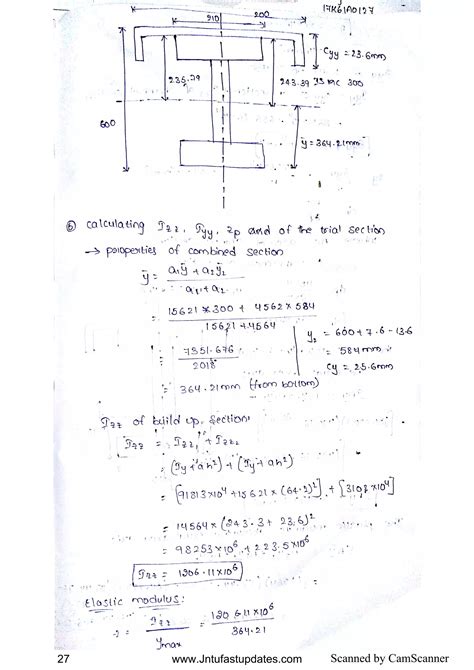 17K61A0127
210
200
Cyy = 23.6mm
235.79
243.39
ISMC 300
600
ȳ = 364.21mm
⑥ calculating Izz, Iyy, Zp and of the trial section
→ properties of combined section
ȳ = a₁ȳ + a₂y₂
a₁ + a₂
= 15621 × 300 + 4562 × 584
15621 + 4564
y₂ = 600 + 7.6 - 13.6
= 584mm
Cy = 25.6mm
= 7351.676
2018
= 364.21mm (from bottom)
Izz of build up section:
Izz = Izz₁ + Izz₂
= (Iy + ah²) + (Iy + ah²)
= [91813×10⁴ + 15621 × (64.2)²] + [3108×10⁴]
= 14564 × (243.3 + 23.6)²
= 98253×10⁶ + 223.5×10⁶
Izz = 1206.11×10⁶
Elastic modulus:
= Izz = 1206.11×10⁶
Ymax 364.21
27 www.Jntufastupdates.com Scanned by CamScanner